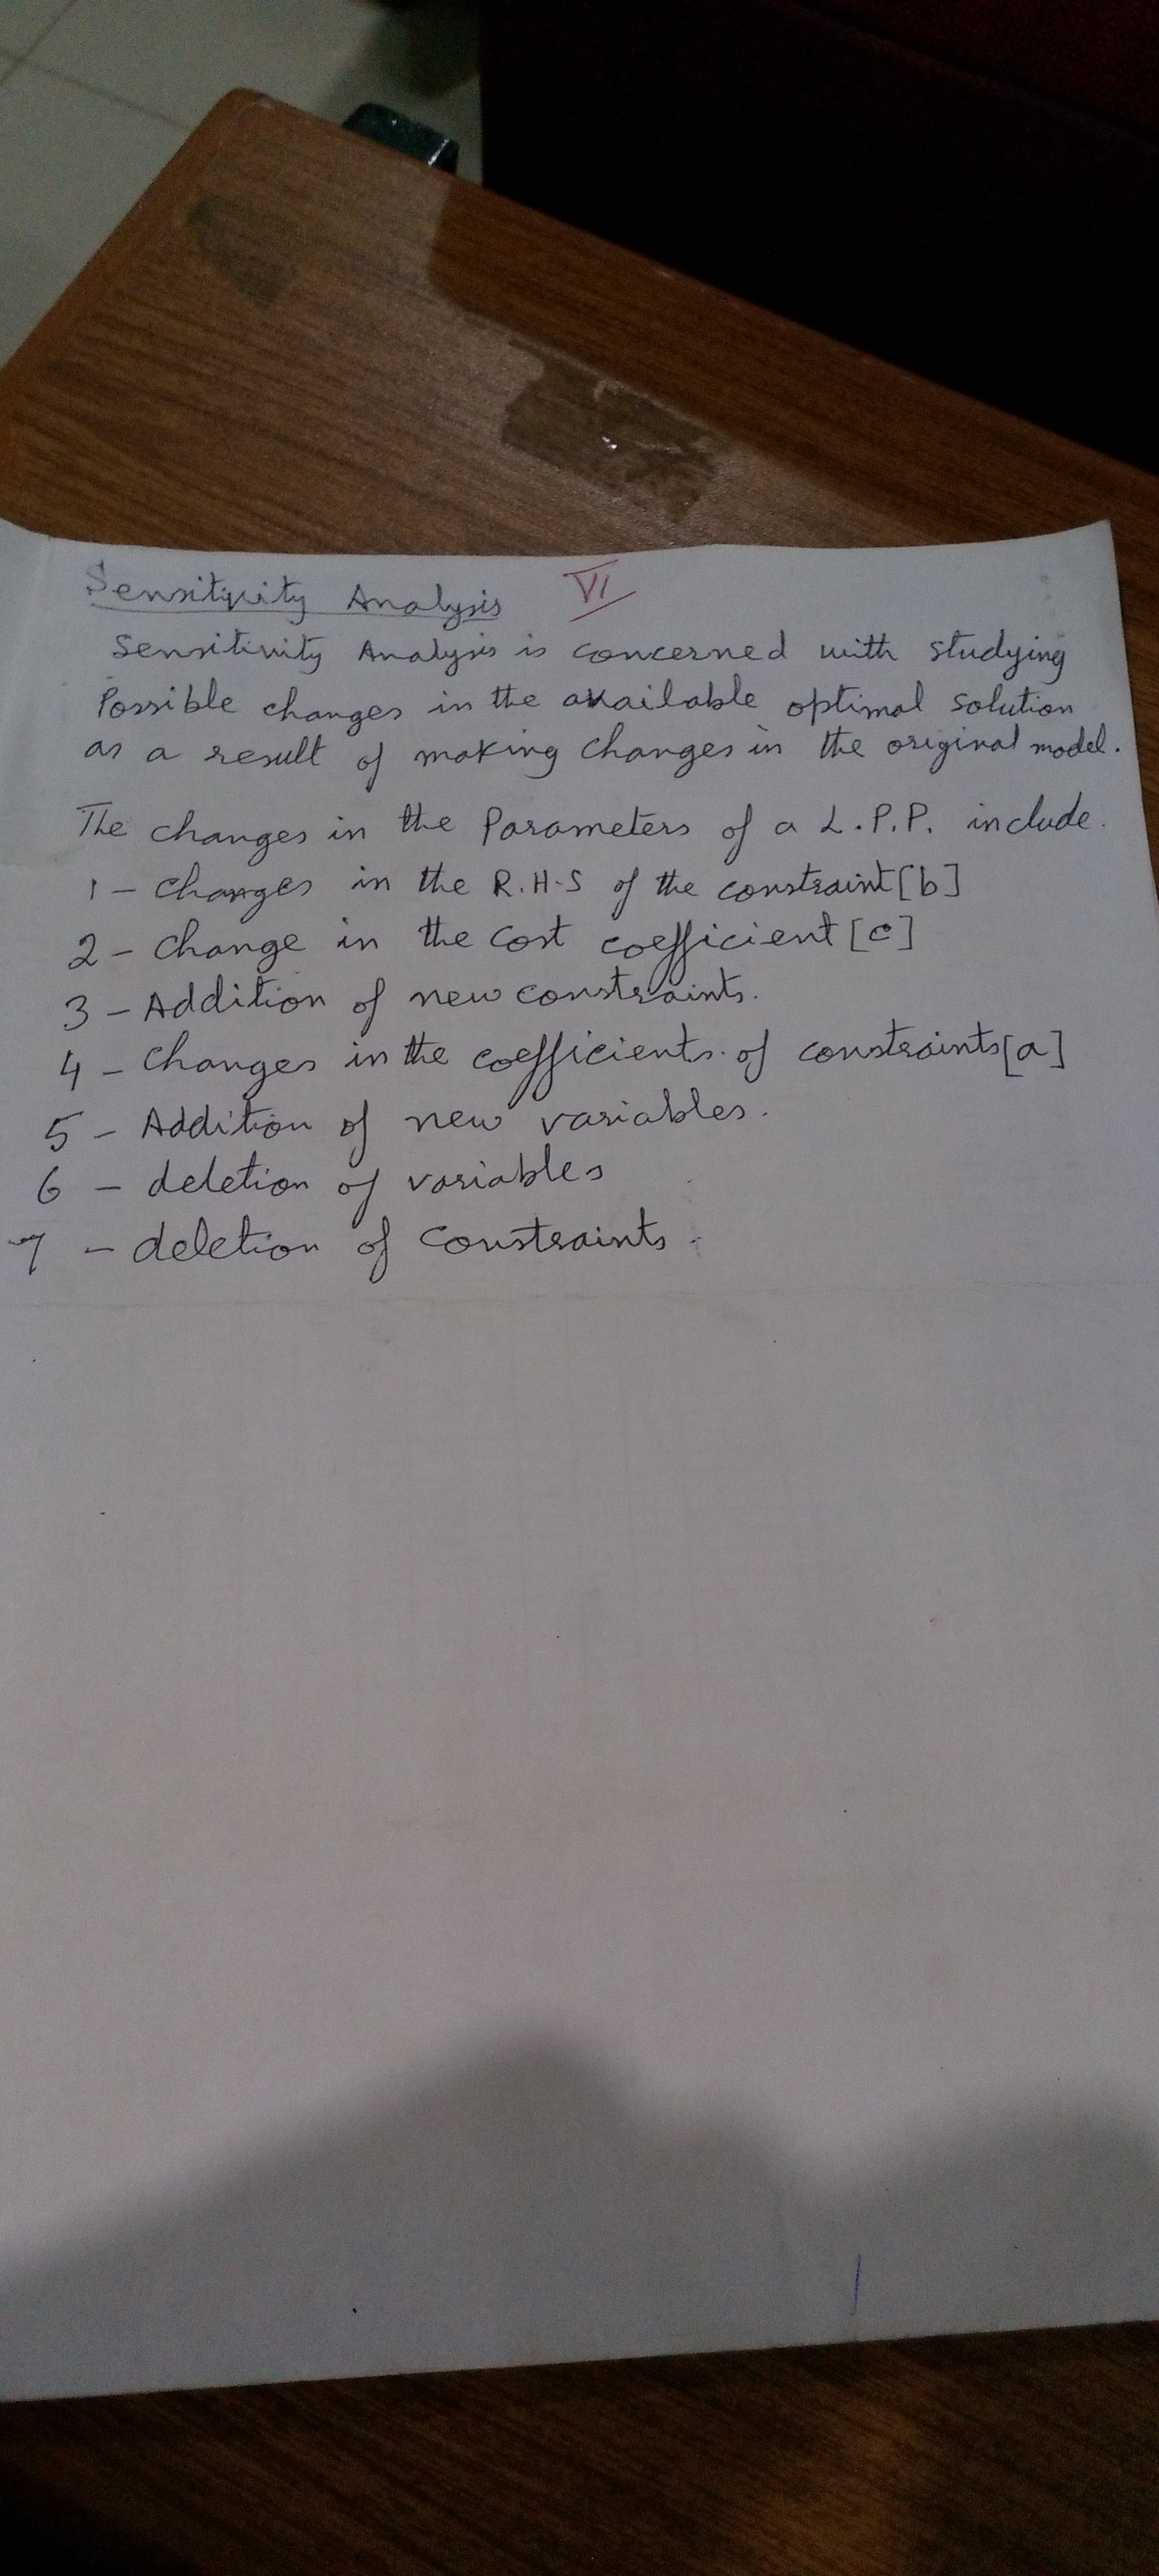 Sensitivity Analysis VI
Sensitivity Analysis is concerned with studying
Possible changes in the available optimal solution
as a result of making changes in the original model.
The changes in the Parameters of a L.P.P. include.
1 - changes in the R.H.S of the constraint [b]
2 - change in the cost coefficient [c]
3 - Addition of new constraints.
4 - changes in the coefficients of constraints [a]
5 - Addition of new variables.
6 - deletion of variables
7 - deletion of constraints.